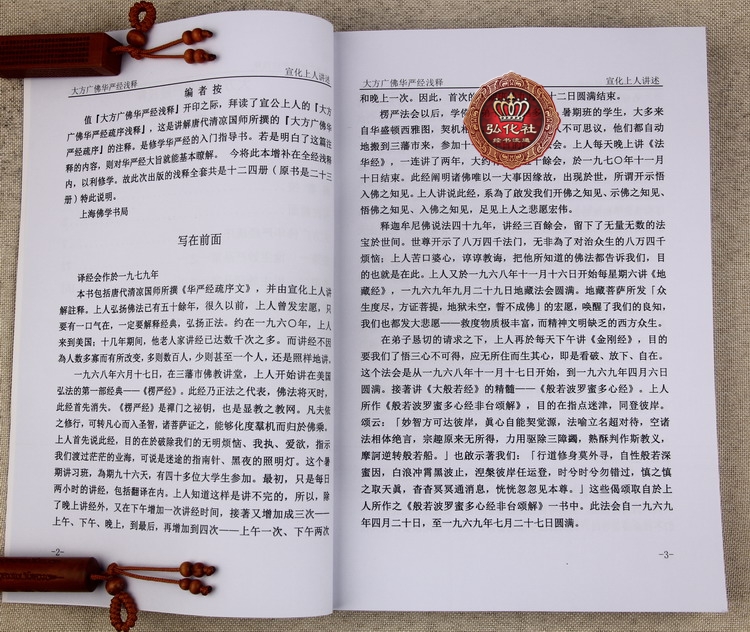 大方广佛华严经浅释
宣化上人讲述
编者按
值『大方广佛华严经浅释』开印之际，拜读了宣公上人的『大方
广佛华严经疏序浅释』，这是讲解唐代清凉国师所撰的『大方广佛华
严经疏序』的注释。是修学华严经的入门指导书。若是明白了这篇注
释的内容，则对华严经大旨就能基本瞭解。 今将此本增补在全经浅释
内，以利修学。故此次出版的浅释全套共是二十四册（原书是二十三
册）特此说明。
上海佛学书局
写在前面
译经会作於一九七九年
本书包括唐代清凉国师所撰《华严经疏序文》，并由宣化上人讲
解註释。上人弘扬佛法已有五十餘年，很久以前，上人曾发宏愿，只
要有一口气在，一定要解释经典，弘扬正法。约在一九六〇年，上人
来到美国；十几年期间，他老人家讲经已达数千次之多。而讲经不因
為人数多寡而有所改变，多则数百人，少则甚至一个人，还是照样地讲。
一九六八年六月十七日，在三藩市佛教讲堂，上人开始讲在美国
弘法的第一部经典——《楞严经》。此经乃正法之代表，佛法将灭时，
此经首先消失。《楞严经》是禪门之祕钥，也是显教之教网。凡夫依
之修行，可转凡心而入圣智，诸菩萨证之，能够化度羣机而归於佛乘，
上人首先说此经，目的在於破除我们的无明烦恼、我执、爱欲，指示
我们渡过茫茫的业海，可说是迷途的指南针、黑夜的照明灯。这个暑
期讲习班，為期九十六天，有四十多位大学生参加。最初，只是每日
两小时的讲经，包括翻译在内。上人知道这样是讲不完的，所以，除
了晚上讲经外，又在下午增加一次讲经时间，接著又增加成三次——
上午、下午、晚上，到最后，再增加到四次——上午一次、下午两次
-2-
大方广佛华严经浅释
宣化上人讲述
和晚上一次。因此，首次的
十二日圆满结束。
楞严法会以后，学依
暑期班的学生，大多来
自华盛顿西雅图，契机相
人不可思议，他们都自动
地搬到三藩市来，参加十
上人每天晚上讲《法
华经》，一连讲了两年，大约
餘会，於一九七〇年十一月
十日结束。此经阐明诸佛唯以一大事因缘故，出现於世，所谓开示悟
入佛之知见。上人讲说此经，系為了啟发我们开佛之知见、示佛之知见、
悟佛之知见、入佛之知见，足见上人之悲愿宏伟。
释迦牟尼佛说法四十九年，讲经三百餘会，留下了无量无数的法
宝於世间。世尊开示了八万四千法门，无非為了对治众生的八万四千
烦恼；上人苦口婆心，谆谆教诲，把他所知道的佛法都告诉我们，目
的也就是在此。上人又於一九六八年十一月十六日开始每星期六讲《地
藏经》，一九六九年九月二十七日地藏法会圆满。地藏菩萨所发「众
生度尽，方证菩提，地狱未空，誓不成佛」的宏愿，唤醒了我们的良知，
我们也都发大悲愿——救度物质极丰富，而精神文明缺乏的西方众生。
在弟子恳切的请求之下，上人再於每天下午讲《金刚经》，目的
要我们了悟三心不可得，应无所住而生其心，即是看破、放下、自在。
这个法会是从一九六八年十一月十七日开始，到一九六九年四月六日
圆满。接著讲《大般若经》的精髓——《般若波罗蜜多心经》。上人
所作《般若波罗蜜多心经非台颂解》，目的在指点迷津，同登彼岸。
颂云：「妙智方可达彼岸，真心自能契觉源，法喻立名超对待，空诸
法相体绝言，宗趣原来无所得，力用驱除三障蠲，熟酥判作斯教义，
摩訶逆转般若船。」也啟示著我们：「行道修身莫外寻，自性般若深
蜜因，白浪冲霄黑波止，涅槃彼岸任运登，时兮时兮勿错过，慎之慎
之取天真，杳杳冥冥通消息，恍恍忽忽见本尊。」这些偈颂取自於上
人所作之《般若波罗蜜多心经非台颂解》一书中。此法会自一九六九
年四月二十日，至一九六九年七月二十七日圆满。
-3-
弘化社
经书法造